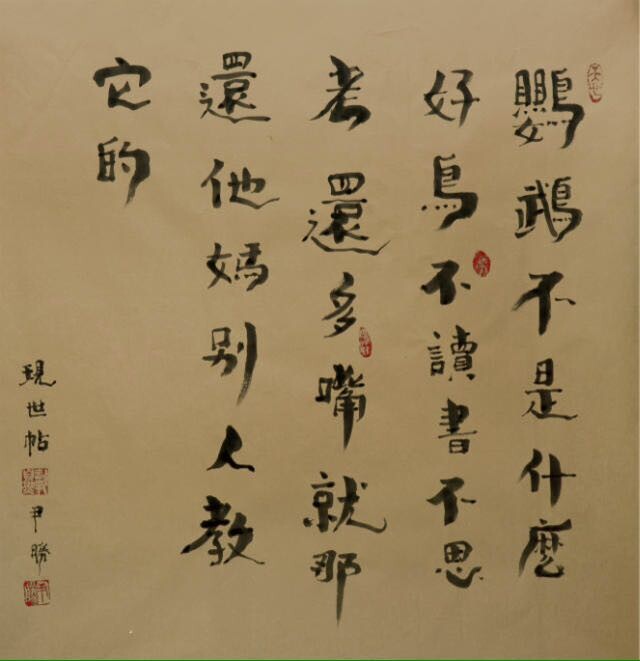 鸚鵡不是什麼
好鳥不讀書不思
考還多嘴就那
還他媽别人教
它的
現世帖 尹勝